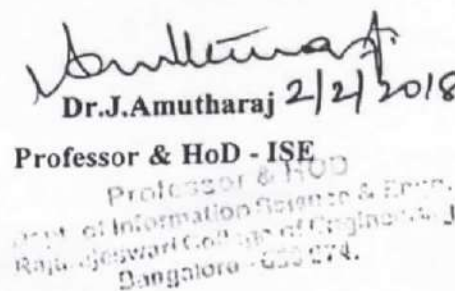 Dr.J.Amutharaj 2/2/2018
Professor & HoD - ISE
Professor & HOD
Dept. of Information Science & Engg.
College of Engineering
Bangalore - 560 074.